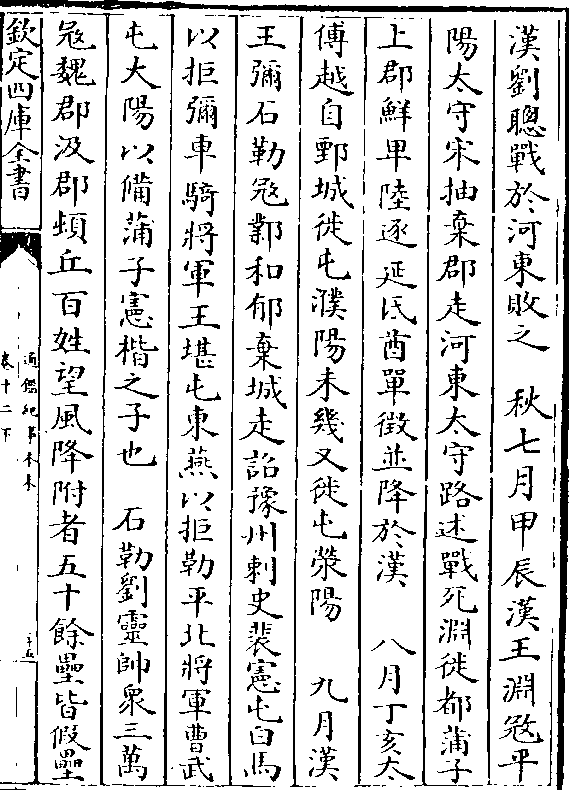 漢劉聰戰於河東敗之　秋七月甲辰漢王淵宼平
陽太守宋抽棄郡走河東太守路述戰死淵徙都蒲子
上郡鮮卑陸逐延氐酋單徵並降於漢　八月丁亥太
傅越自鄄城徙屯濮陽未幾又徙屯滎陽　九月漢
王彌石勒宼鄴和郁棄城走詔豫州刺史裴憲屯白馬
以拒彌車騎將軍王堪屯東燕以拒勒平北將軍曹武
屯大陽以備蒲子憲楷之子也　石勒劉靈帥衆三萬
宼魏郡汲郡頓丘百姓望風降附者五十餘壘皆假壘
欽定四庫全書
通鑑紀事本末
卷十二下